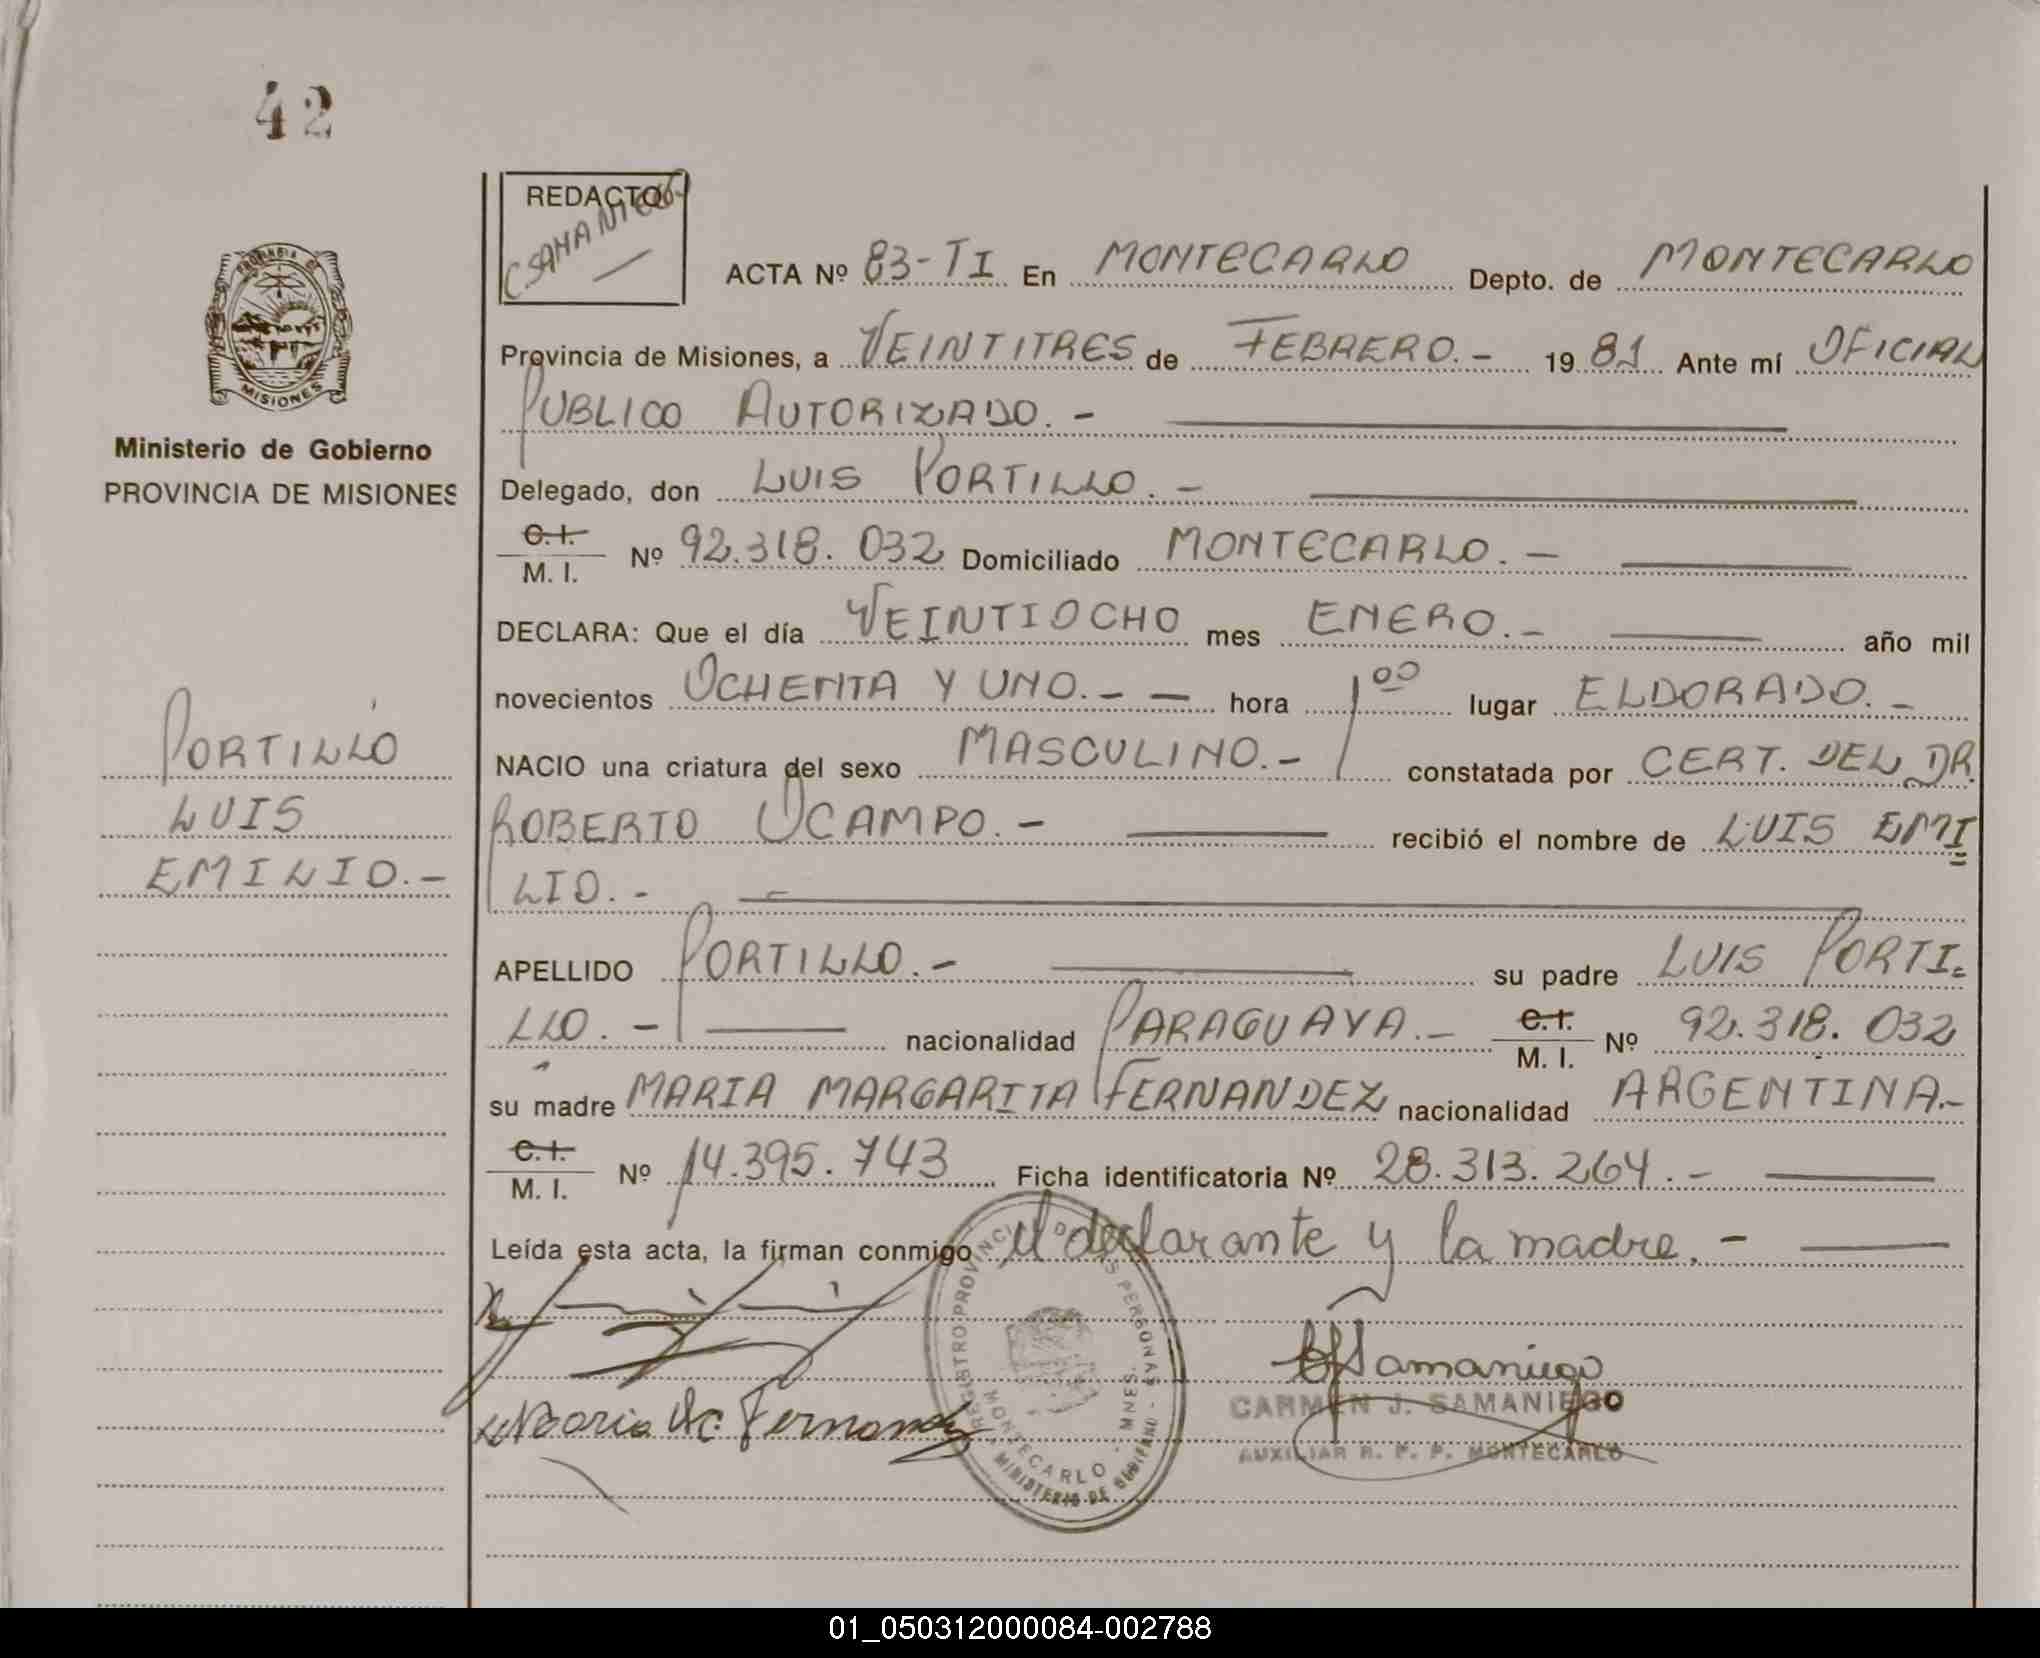 42
REDACTO
CSAMANIEGO
ACTA Nº 83-TI En MONTECARLO Depto. de MONTECARLO
Provincia de Misiones, a VEINTITRES de FEBRERO.- 1981 Ante mí OFICIAL
PUBLICO AUTORIZADO.-
Delegado, don LUIS PORTILLO.-
C.I. / M. I. Nº 92.318.032 Domiciliado MONTECARLO.-
DECLARA: Que el día VEINTIOCHO mes ENERO.- año mil
novecientos OCHENTA Y UNO.-- hora 1⁰⁰ lugar ELDORADO.-
NACIO una criatura del sexo MASCULINO.- constatada por CERT. DEL DR.
ROBERTO OCAMPO.- recibió el nombre de LUIS EMI
LIO.-
APELLIDO PORTILLO.- su padre LUIS PORTI=
LLO.- nacionalidad PARAGUAYA.- C.I. / M. I. Nº 92.318.032
su madre MARIA MARGARITA FERNANDEZ nacionalidad ARGENTINA.-
C.I. / M. I. Nº 14.395.743 Ficha identificatoria Nº 28.313.264.-
Leída esta acta, la firman conmigo el declarante y la madre.-
Maria M. Fernandez
CJSamaniego
CARMEN J. SAMANIEGO
AUXILIAR R. P. P. MONTECARLO
REGISTRO PROVINCIAL DE LAS PERSONAS - MNES.
MONTECARLO
MINISTERIO DE GOBIERNO
PROVINCIA DE
MISIONES
Ministerio de Gobierno
PROVINCIA DE MISIONES
PORTILLO
LUIS
EMILIO.-
01_050312000084-002788